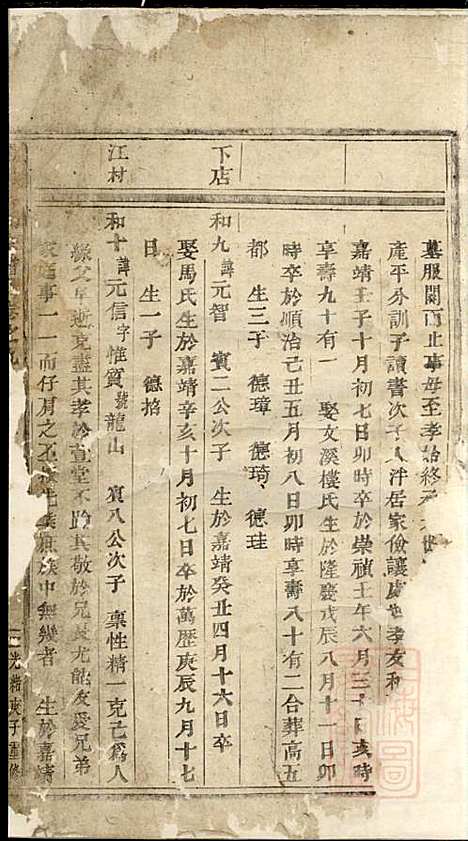 墓服闋而止事母至孝始終
產平分訓子讀書次子入泮居家儉讓處世孝友和
嘉靖壬子十月初七日卯時卒於崇禎壬午六月三十日亥時
享壽九十有一 娶文溪樓氏生於隆慶戊辰八月十一日卯
時卒於順治己丑五月初八日卯時享壽八十有二合葬高五
都 生三子 德璋 德琦 德珪
下店
和九諱元智 賓二公次子 生於嘉靖癸丑四月十六日卒
娶馬氏生於嘉靖辛亥十月初七日卒於萬歷庚辰九月十七
日 生一子 德招
江村
和十諱元信字惟賓號龍山 賓八公次子 稟性精一克己爲人
緣父早逝克盡其孝於萱堂不踰其敬於兄長尤能友愛兄弟
家務事一一而仔肩之 族中無幾者 生於嘉靖
光緒庚子重修
上海圖